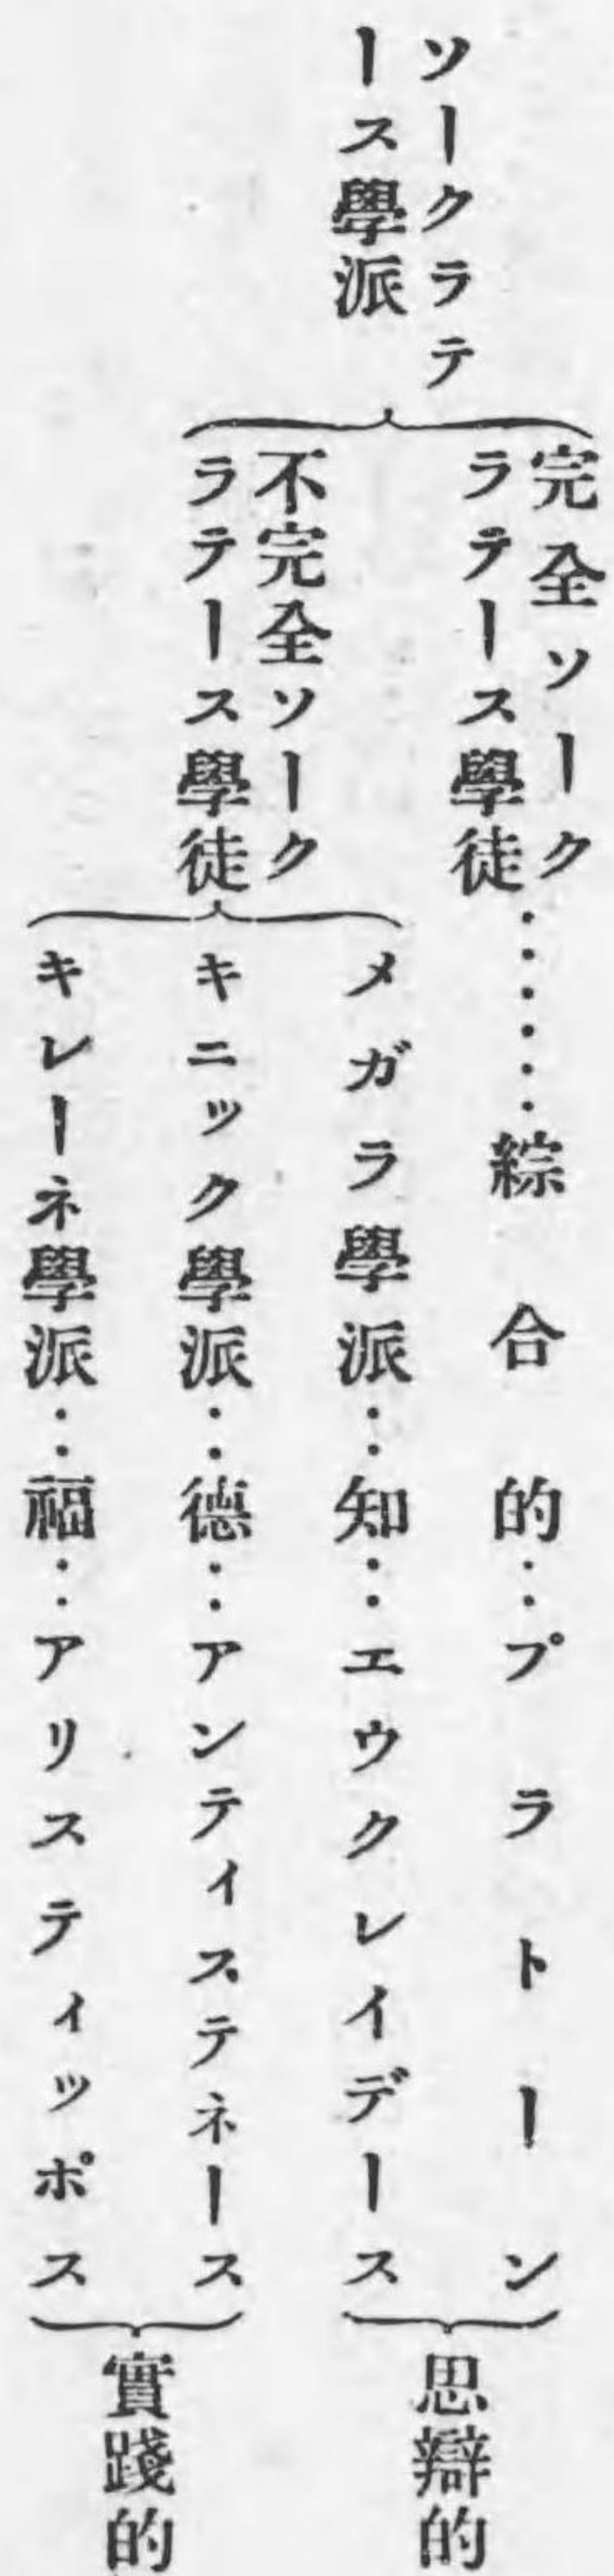 ソークラテ
ース學派
完全ソーク
ラテース學徒……綜合的…プラトーン
不完全ソーク
ラテース學徒
メガラ學派…知…エウクレイデース
キニック學派…德…アンティステネース
キレーネ學派…福…アリスティッポス
思辯的
實踐的